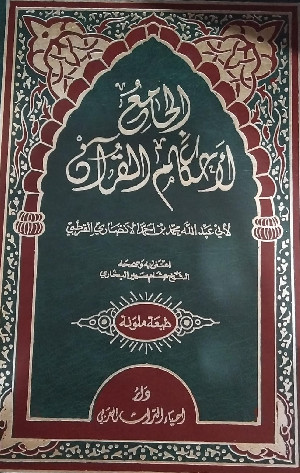 الجامع
لأحكام القرآن
لأبي عبد الله محمد بن أحمد الأنصاري القرطبي
اعتنى به وصححه
الشيخ هشام سمير البخاري
طبعة ملونة
دار
إحياء التراث العربي